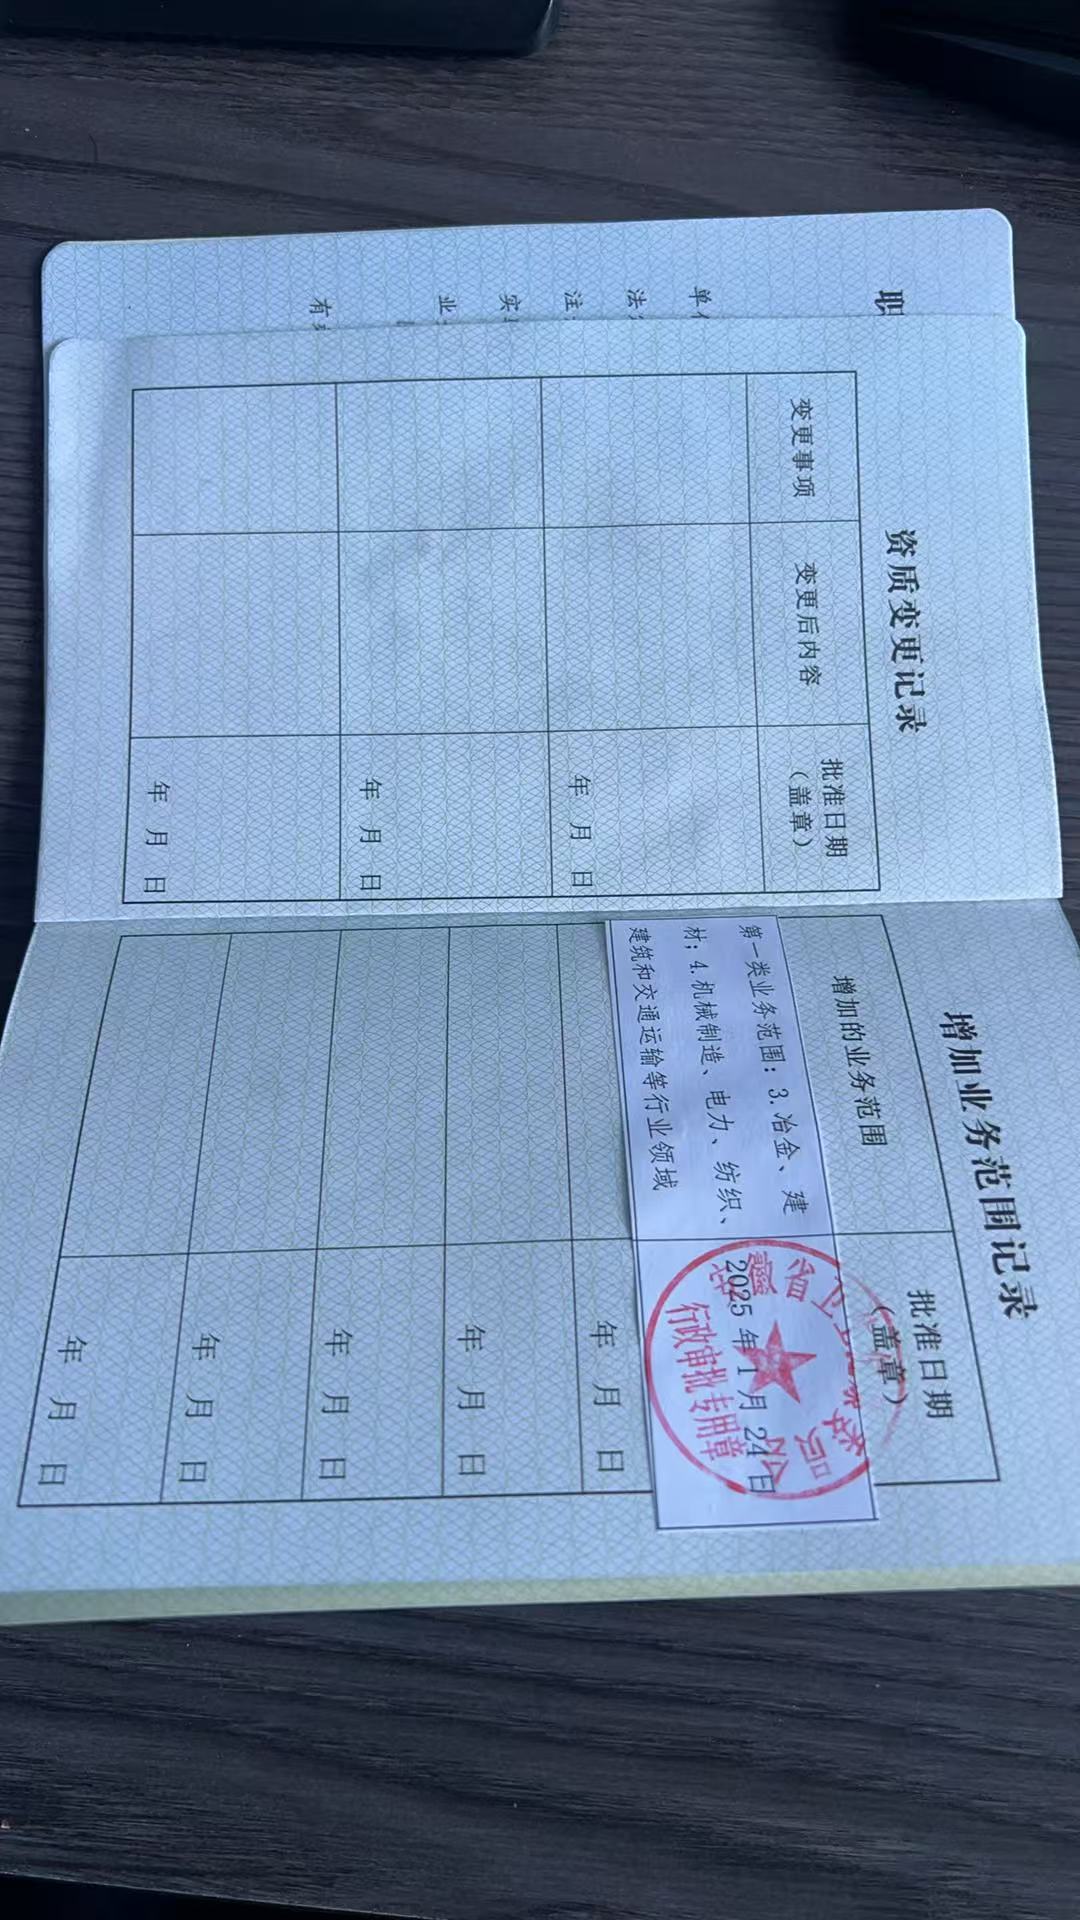 职
单
法
注
实
业
有
资质变更记录
变更事项
变更后内容
批准日期
（盖章）
年 月 日
年 月 日
年 月 日
增加业务范围记录
增加的业务范围
批准日期
（盖章）
第一类业务范围：3.冶金、建
材；4.机械制造、电力、纺织、
建筑和交通运输等行业领域
2025 年 1 月 24 日
省卫
行政审批专用章
年 月 日
年 月 日
年 月 日
年 月 日
年 月 日